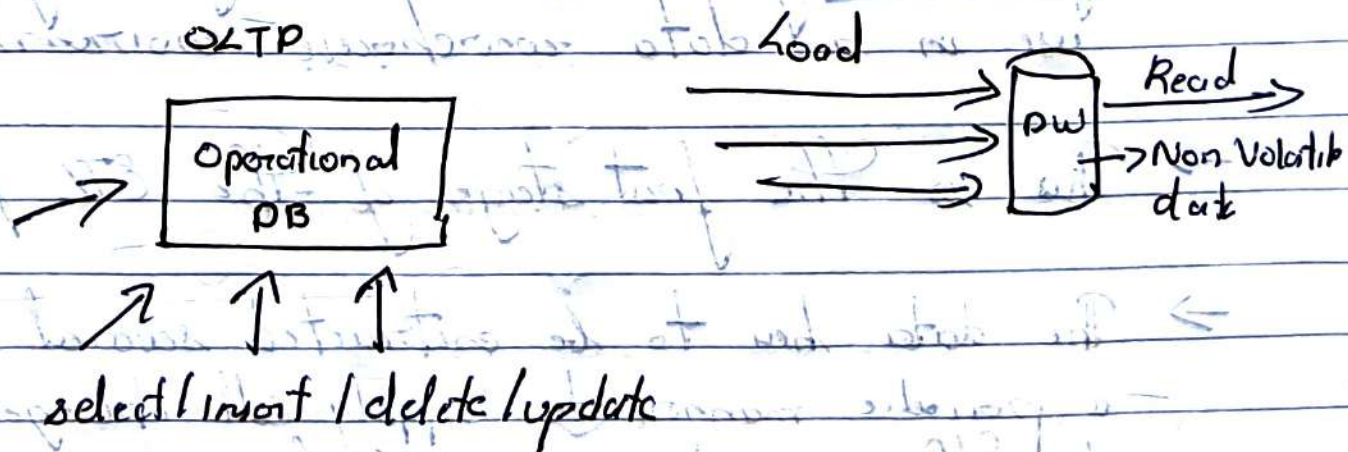 OLTP
Load
Read
Operational
DB
DW
Non Volatile
data
select / insert / delete / update